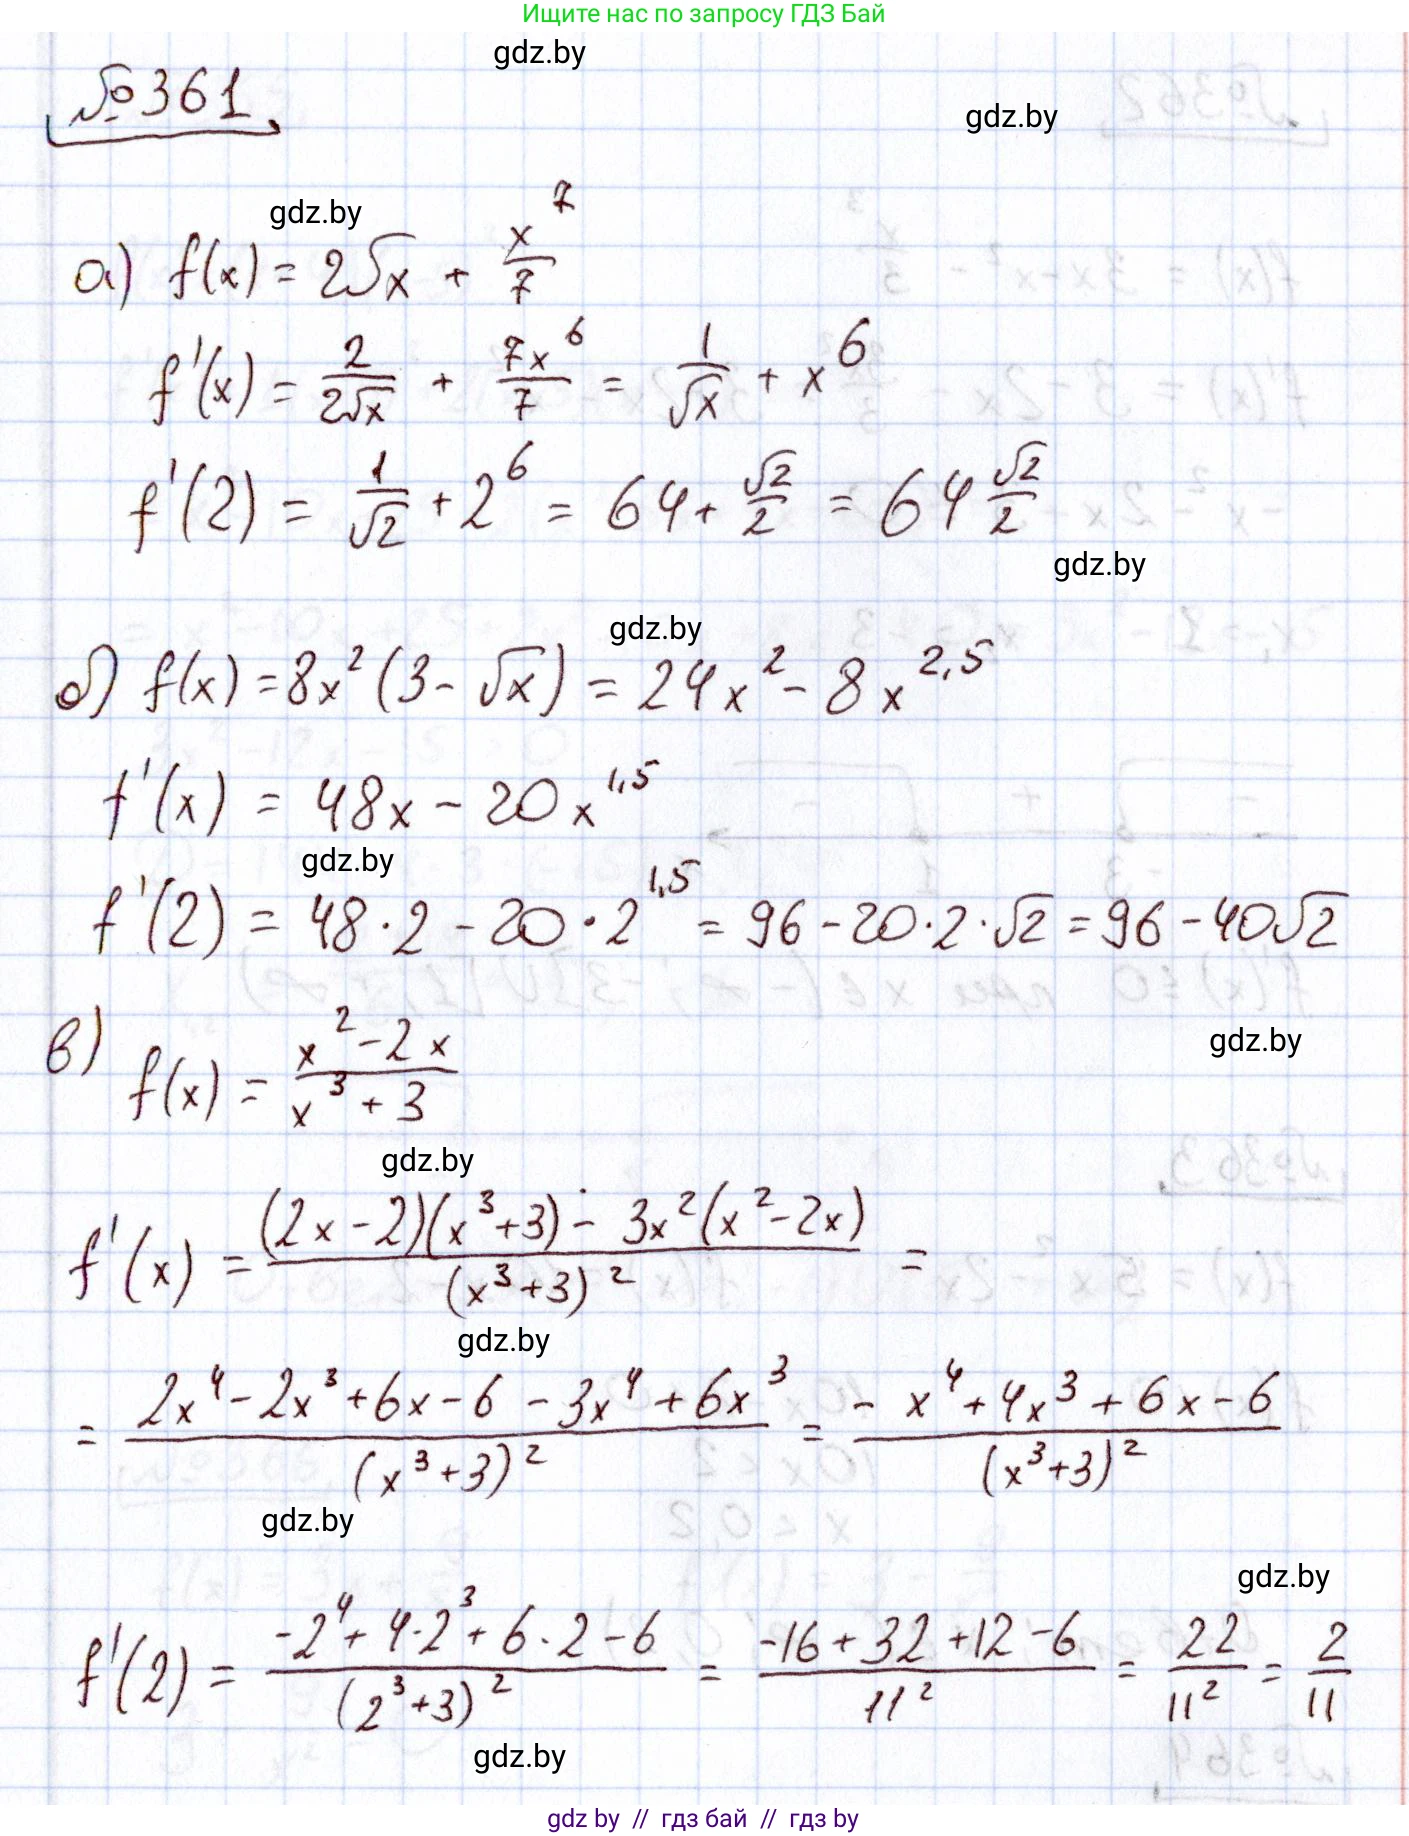 Ищите нас по запросу ГДЗ Бай
gdz.by
№361
gdz.by
gdz.by
а) f(x) = 2√x + x⁷/7
f'(x) = 2/(2√x) + 7x⁶/7 = 1/√x + x⁶
f'(2) = 1/√2 + 2⁶ = 64 + √2/2 = 64 √2/2
gdz.by
gdz.by
б) f(x) = 8x²(3 - √x) = 24x² - 8x^2,5
f'(x) = 48x - 20x^1,5
gdz.by
f'(2) = 48·2 - 20·2^1,5 = 96 - 20·2·√2 = 96 - 40√2
gdz.by
в) f(x) = (x² - 2x)/(x³ + 3)
gdz.by
f'(x) = ((2x - 2)(x³ + 3) - 3x²(x² - 2x))/(x³ + 3)² =
gdz.by
= (2x⁴ - 2x³ + 6x - 6 - 3x⁴ + 6x³)/(x³ + 3)² = (-x⁴ + 4x³ + 6x - 6)/(x³ + 3)²
gdz.by
gdz.by
f'(2) = (-2⁴ + 4·2³ + 6·2 - 6)/(2³ + 3)² = (-16 + 32 + 12 - 6)/11² = 22/11² = 2/11
gdz.by
gdz by // гдз бай // гдз by